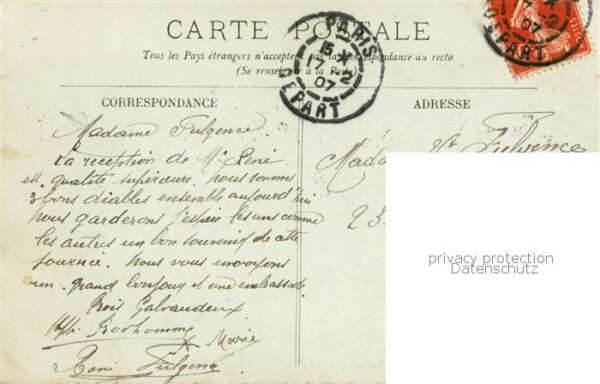 CARTE POSTALE
Tous les Pays étrangers n'acceptent pas la correspondance au recto
(Se renseigner à la Poste)
PARIS
15
17 - 2
07
DEPART
CORRESPONDANCE
ADRESSE
Madame Fulgence.
La reception de Mr
est qualité supérieure. nous sommes
3 bons diables ensemble aujourd'hui
Nous garderons j'espère les uns comme
les autres un bon souvenir de cette
journée. Nous vous envoyons
un grand bonjour et une embrassade
Trois Galvaudeux
Marie
Fulgence
Mada
23
privacy protection
Datenschutz